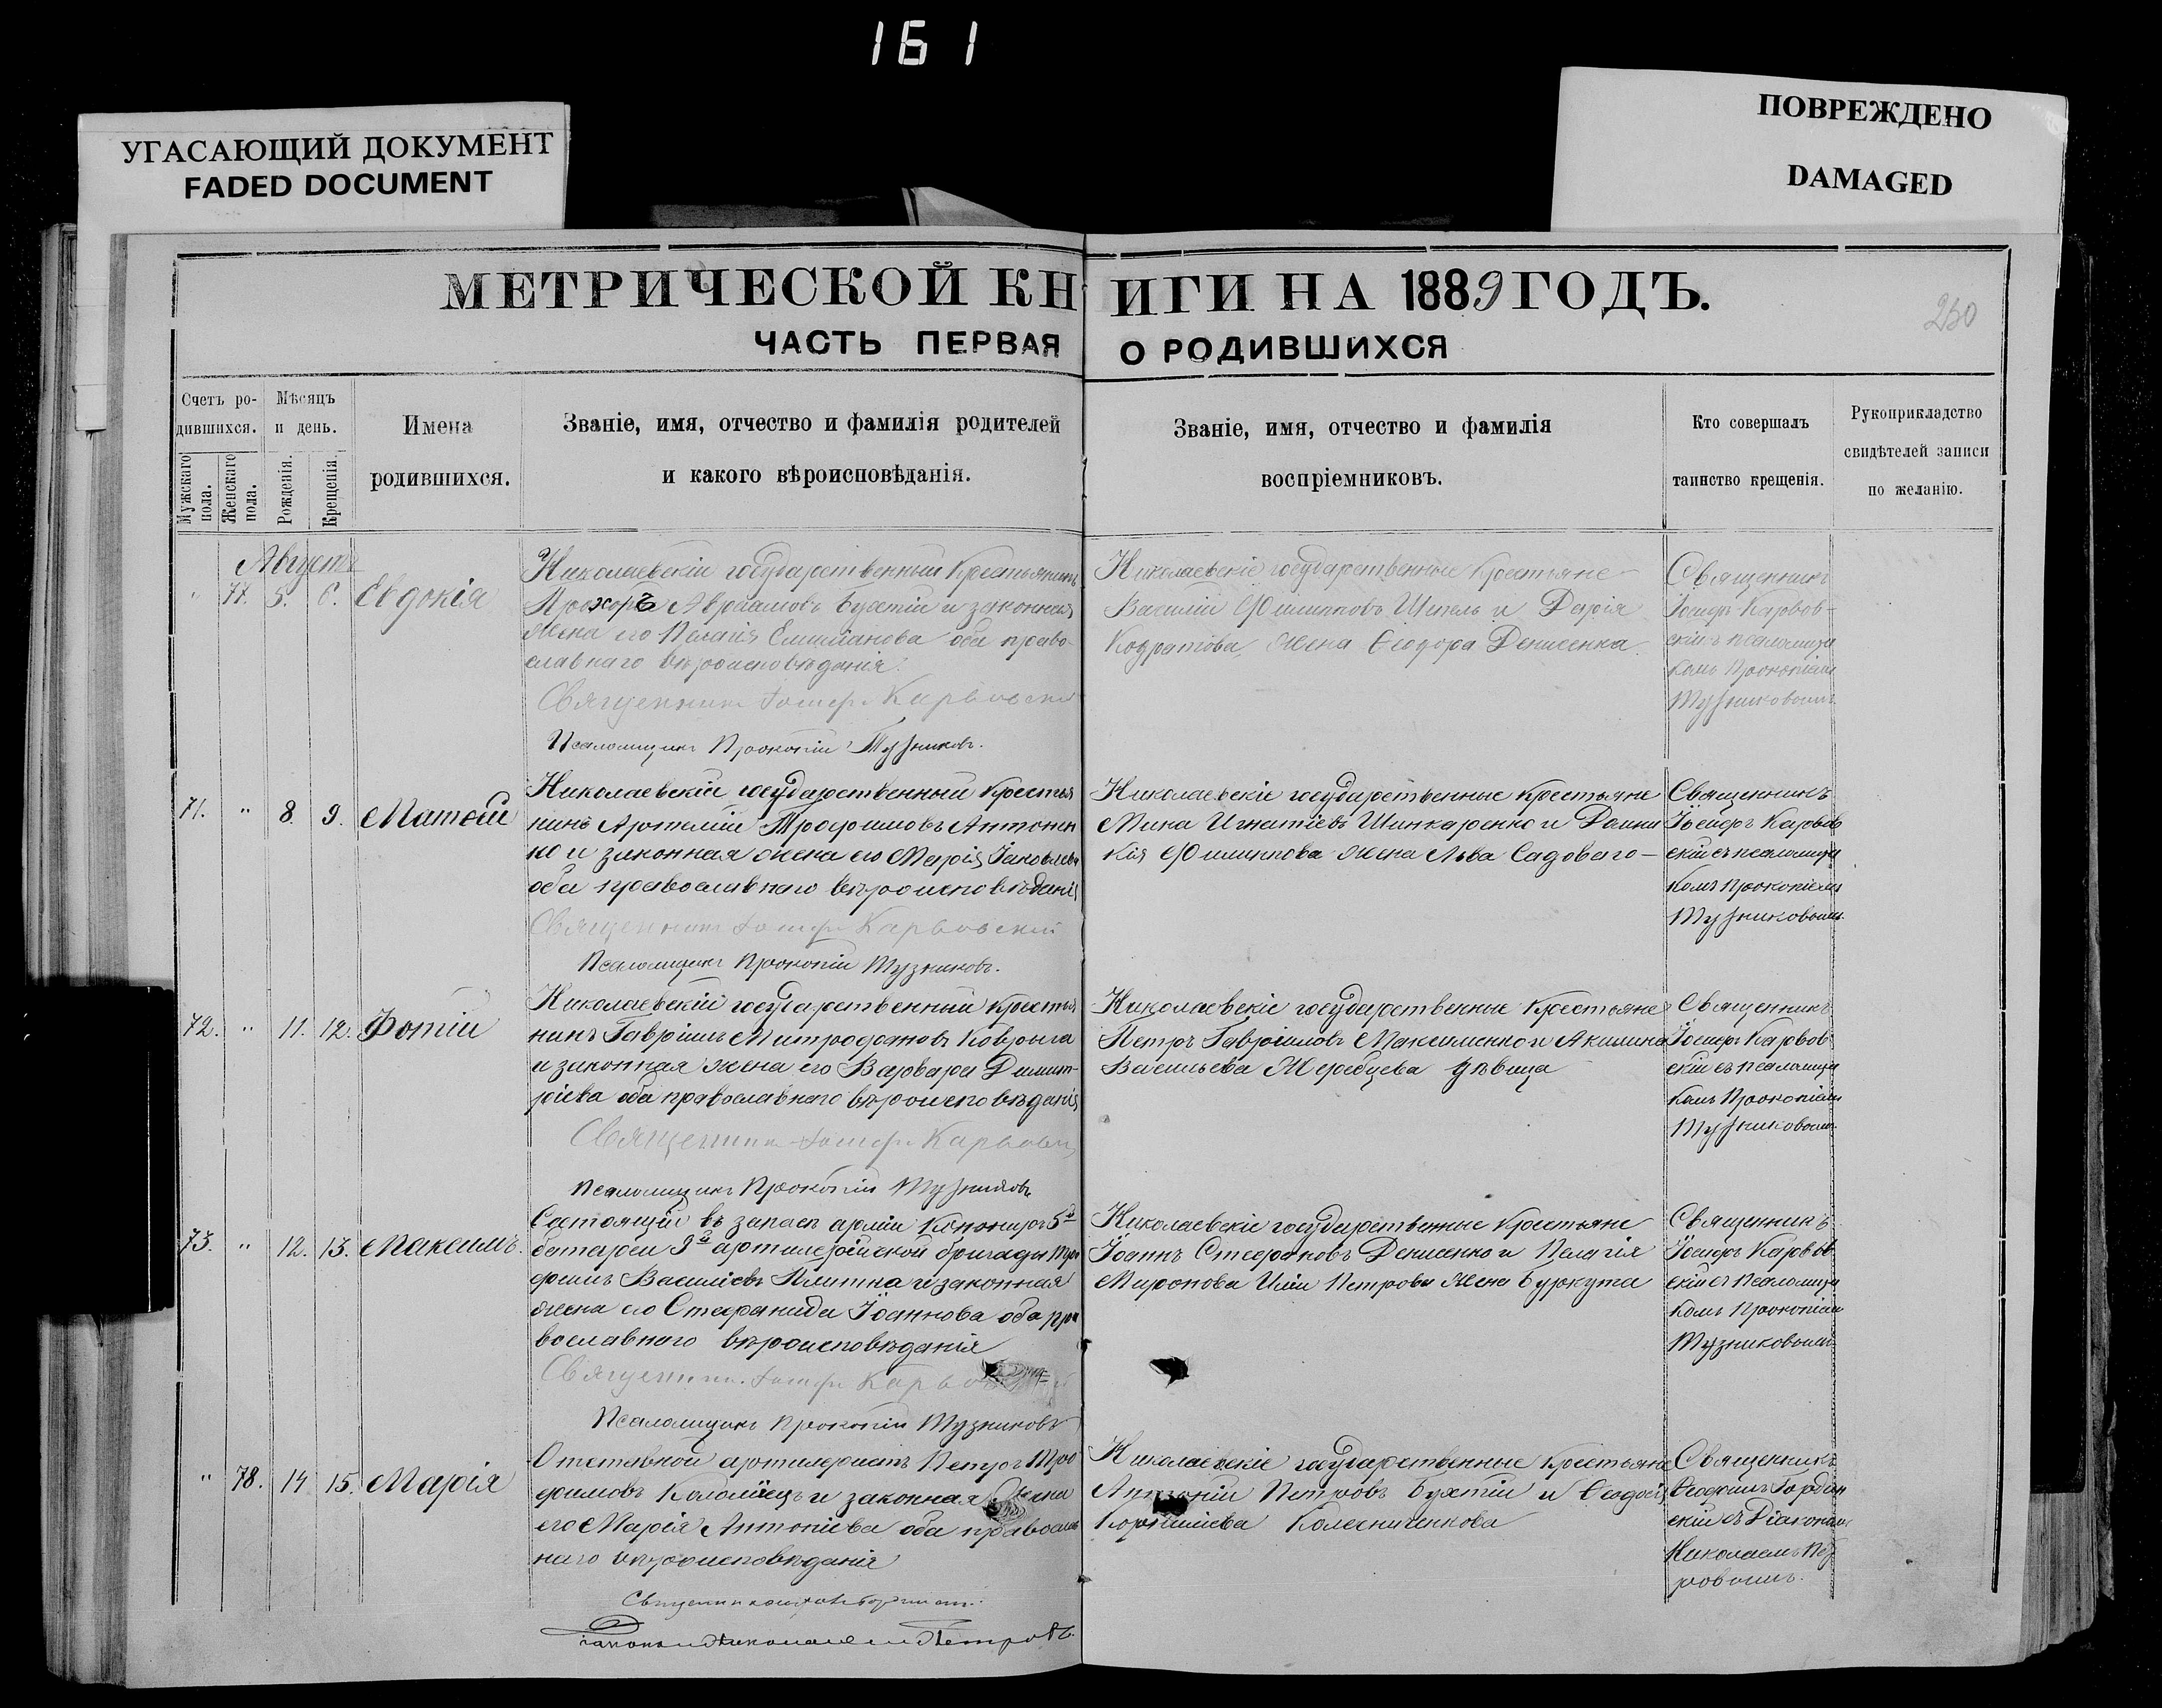 161
УГАСАЮЩИЙ ДОКУМЕНТ
FADED DOCUMENT
ПОВРЕЖДЕНО
DAMAGED
МЕТРИЧЕСКОЙ КНИГИ НА 1889 ГОДЪ.
230
ЧАСТЬ ПЕРВАЯ О РОДИВШИХСЯ
Счетъ ро-
дившихся.
Мужскаго пола.
Женскаго пола.
Мѣсяцъ
и день.
Рожденія.
Крещенія.
Имена
родившихся.
Званіе, имя, отчество и фамилія родителей
и какого вѣроисповѣданія.
Званіе, имя, отчество и фамилія
воспріемниковъ.
Кто совершалъ
таинство крещенія.
Рукоприкладство
свидѣтелей записи
по желанію.
Августъ
" 77. 5. 6. Евдокія
Николаевскій государственный Крестьянинъ
Прохоръ Авраамовъ Бухтій и законная
жена его Пелагія Емиліанова оба право-
славнаго вѣроисповѣданія.
Священникъ Іосифъ Карвовскі
Псаломщикъ Прокопій Тузниковъ.
Николаевскіе государственные Крестьяне
Василій Филипповъ Шпель и Дарія
Кодратова, жена Ѳеодора Денисенка.
Священникъ
Іосифъ Карвов-
скій съ псаломщи
комъ Прокопіемъ
Тузниковымъ.
71. " 8. 9. Матѳей
Николаевскій государственный Крестья
нинъ Артемій Трофимовъ Антонен
ко и законная жена его Марія Іаковлева
оба православнаго вѣроисповѣданія
Священникъ Іосифъ Карвовскій
Псаломщикъ Прокопій Тузниковъ.
Николаевскіе государственные Крестьяне
Мина Игнатіевъ Шинкаренко и Домни
кія Филиппова жена Льва Садоваго –
Священникъ
Іосифъ Карвов
скій съ псаломщи
комъ Прокопіемъ
Тузниковымъ.
72. " 11. 12. Фотій
Николаевскій государственный Крестья
нинъ Гавріилъ Митрофановъ Коврыга
и законная жена его Варвара Димит-
ріева оба православнаго вѣроисповѣданія
Священникъ Іосифъ Карвовскі
Псаломщикъ Прокопій Тузниковъ
Николаевскіе государственные Крестьяне
Петръ Гавріиловъ Максименко и Акилина
Васильева Жеребцева дѣвица
Священникъ
Іосифъ Карвов
скій съ псаломщи
комъ Прокопіемъ
Тузниковымъ.
73. " 12. 13. Максимъ.
Состоящій въ запасѣ арміи Канониръ 5й
батареи 9й артилерійской бригады Тро
фимъ Василіевъ Плитка и законная
жена его Стефанида Іоаннова оба пра
вославнаго вѣроисповѣданія
Священникъ Іосифъ Карвовскій
Псаломщикъ Прокопій Тузниковъ
Николаевскіе государственные Крестьяне
Іоаннъ Стефановъ Денисенко и Пелагія
Миронова Иліи Петрова жена Буркута
Священникъ
Іосифъ Карвов
скій съ Псаломщи
комъ Прокопіемъ
Тузниковымъ
" 78. 14 15. Марія
Отставной артилеристъ Петръ Тро
фимовъ Коломіецъ и законная жена
его Марія Антоніева оба православ
наго вѣроисповѣданія
Діаконъ Николай Петровъ.
Николаевскіе государственные Крестьяне
Антоній Петровъ Бухтій и Ѳеодосія
Корниліева Колесниченкова
Священникъ
Ѳеофилъ Гордин
скій съ Діакономъ
Николаемъ Пет
ровымъ.